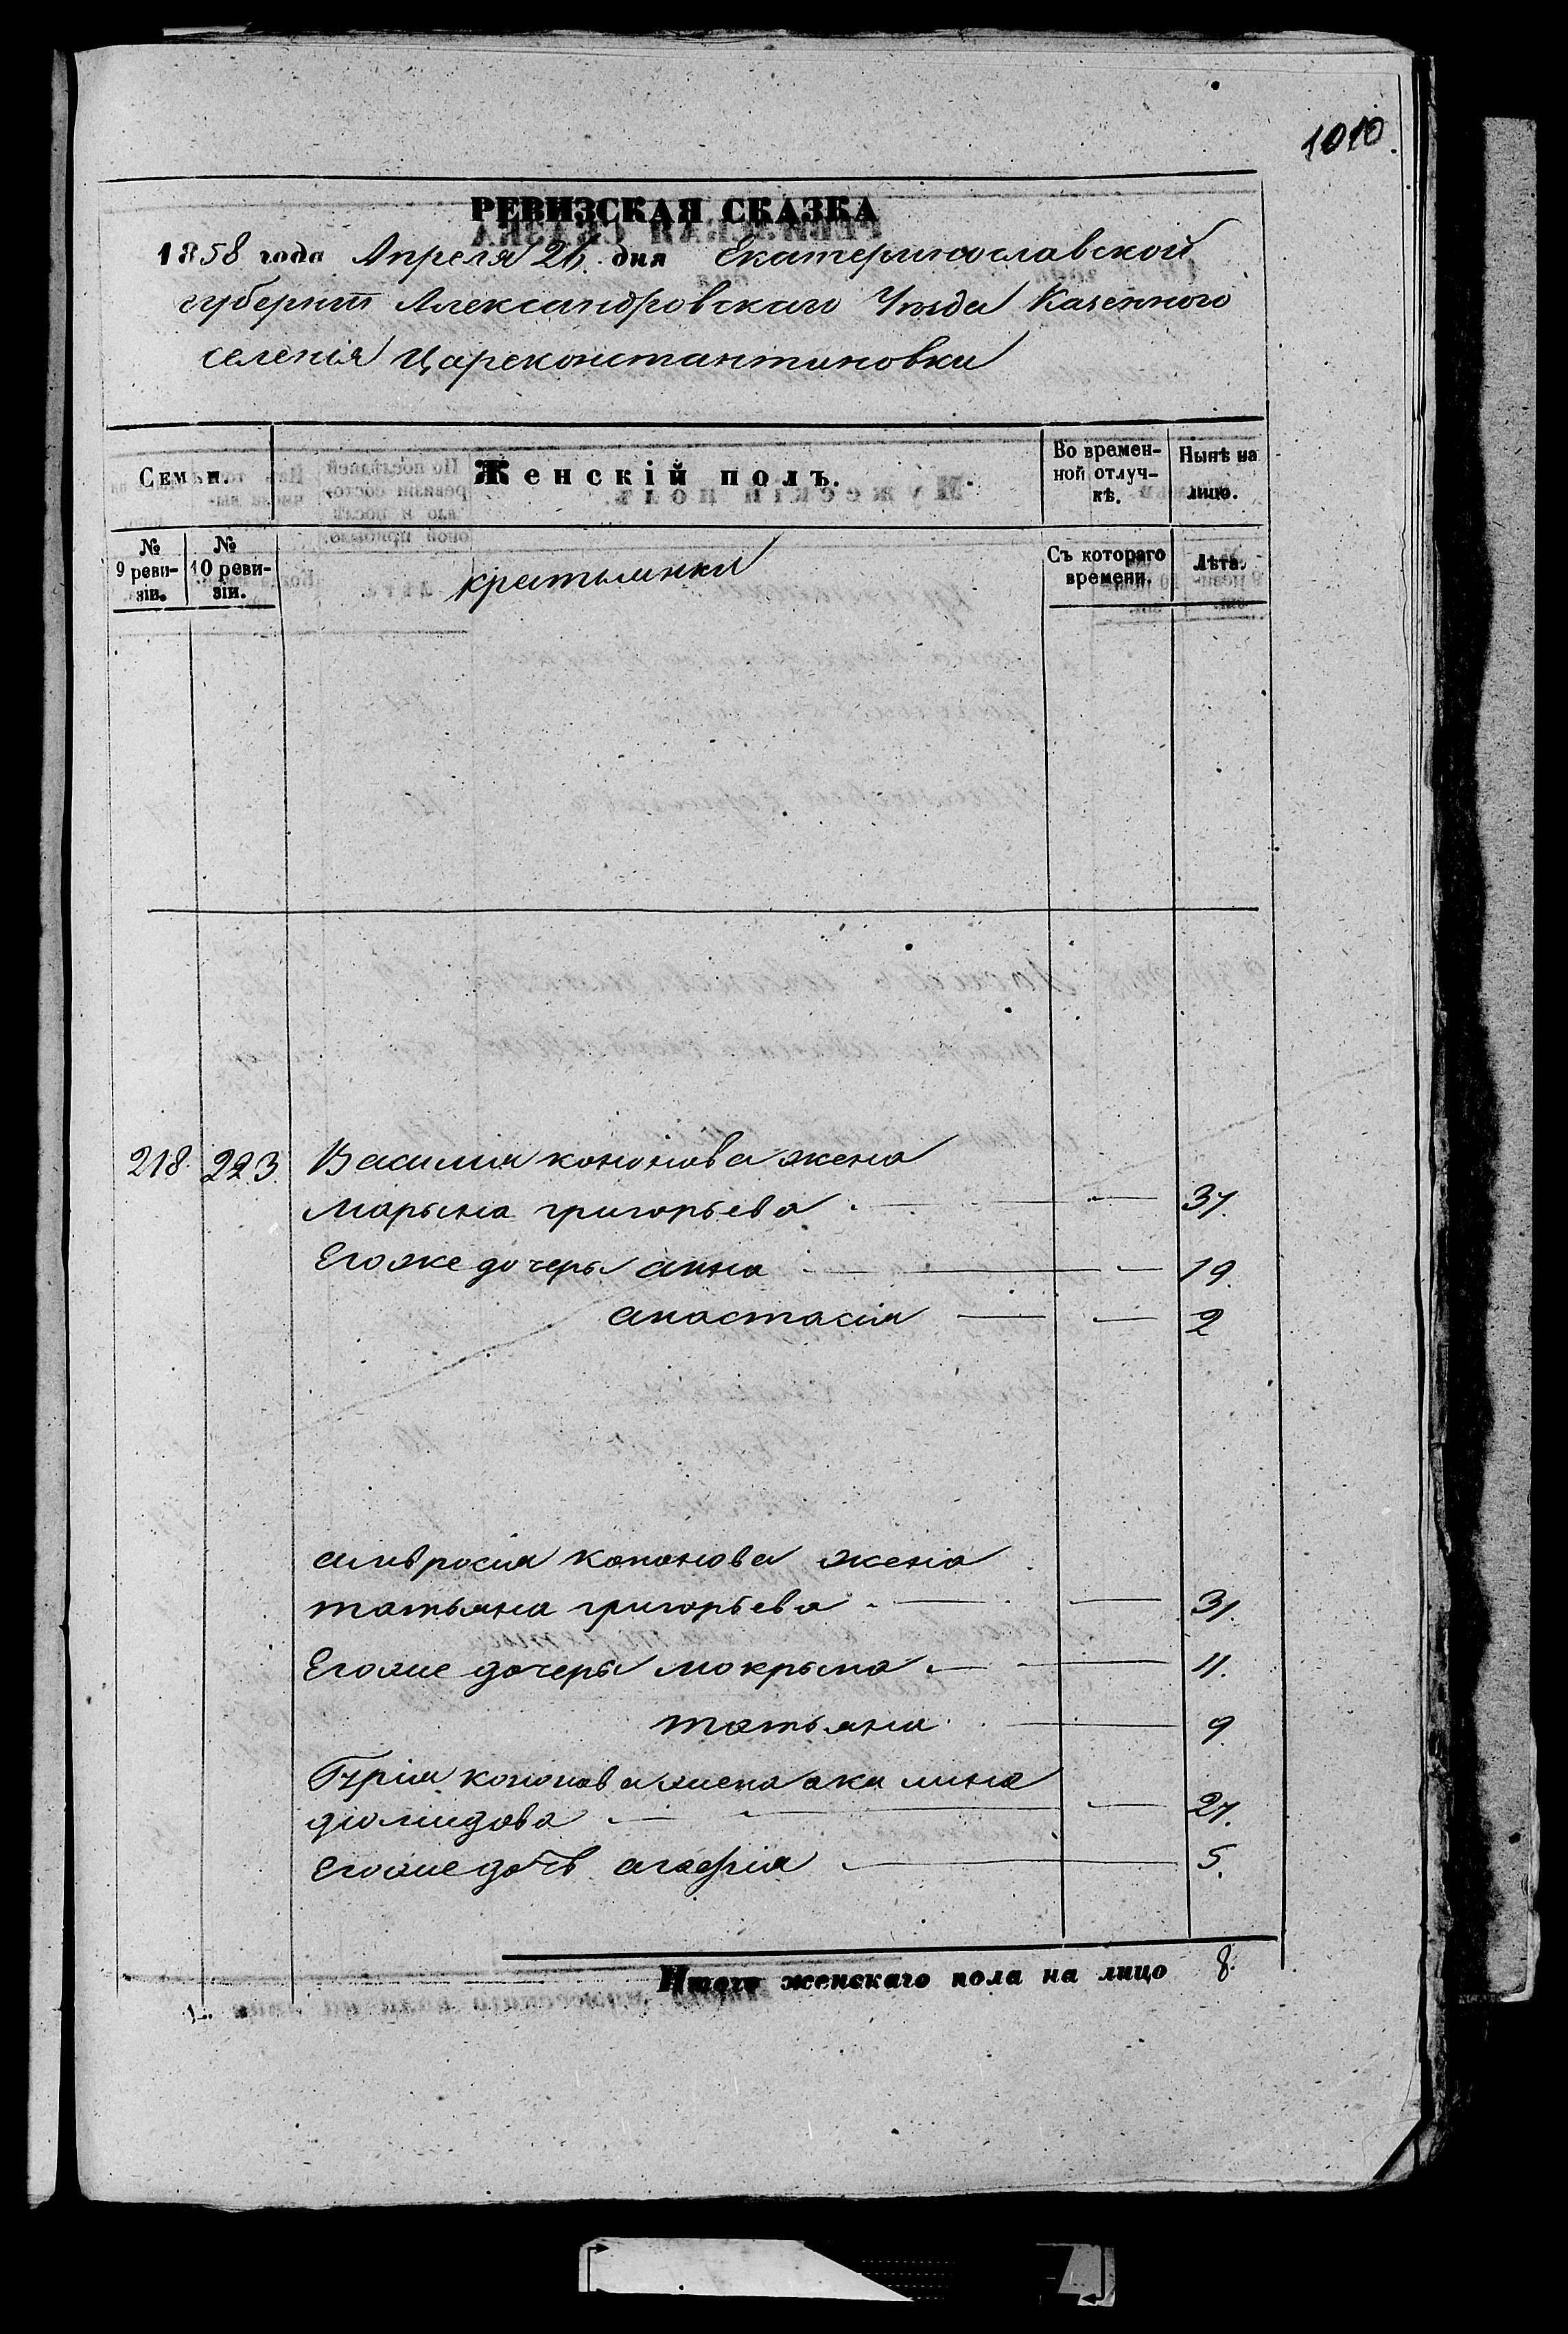 1010.
РЕВИЗСКАЯ СКАЗКА
1858 года Апреля 26. дня Екатеринославской
губерніи Александровскаго Уѣзда Казенного
селенія Цареконстантиновки
Семьи.
Женскій полъ.
Во времен-
ной отлуч-
кѣ.
Нынѣ на
лицо.
№
9 реви-
зіи.
№
10 реви-
зіи.
крестьянки
Съ котораго
времени.
Лѣта.
218. 223. Василія кононова жена
Марына григорьева 37.
Егоже дочеры анна 19.
анастасія 2
амвросія кононова жена
татьяна григорьева 31.
Егоже дочеры мокрына 11.
татьяна 9
Гурія кононова жена акилина
діомидова 27.
Егоже дочь агафія 5.
Итого женскаго пола на лицо 8.